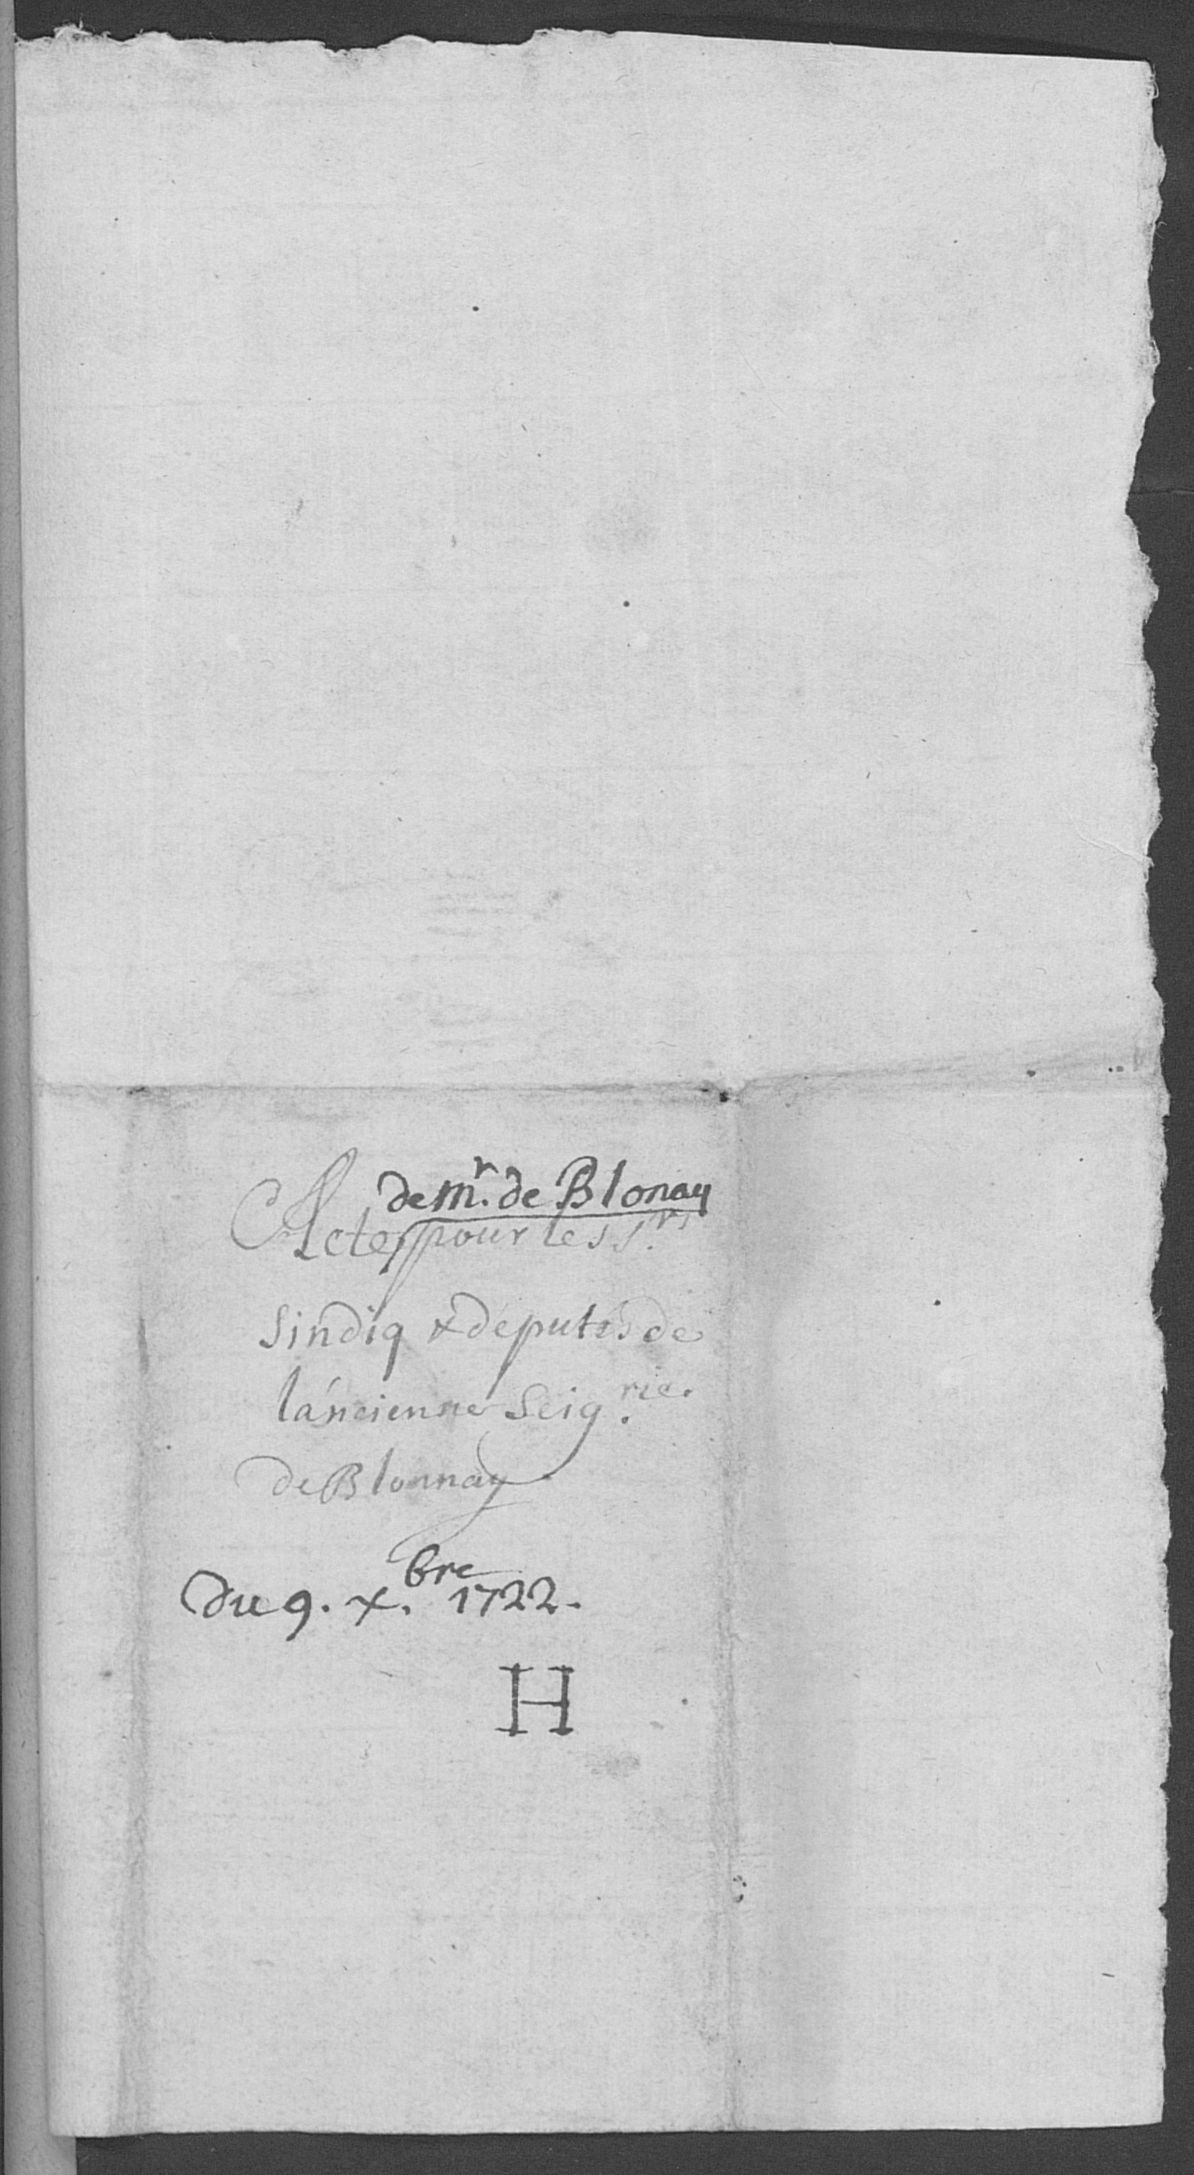 de Mr. de Blonay
Acte pour les Srs
Sindiq & députés de
láncienne Seig.rie.
de Blonnay
Du 9. Xbre. 1722.
H